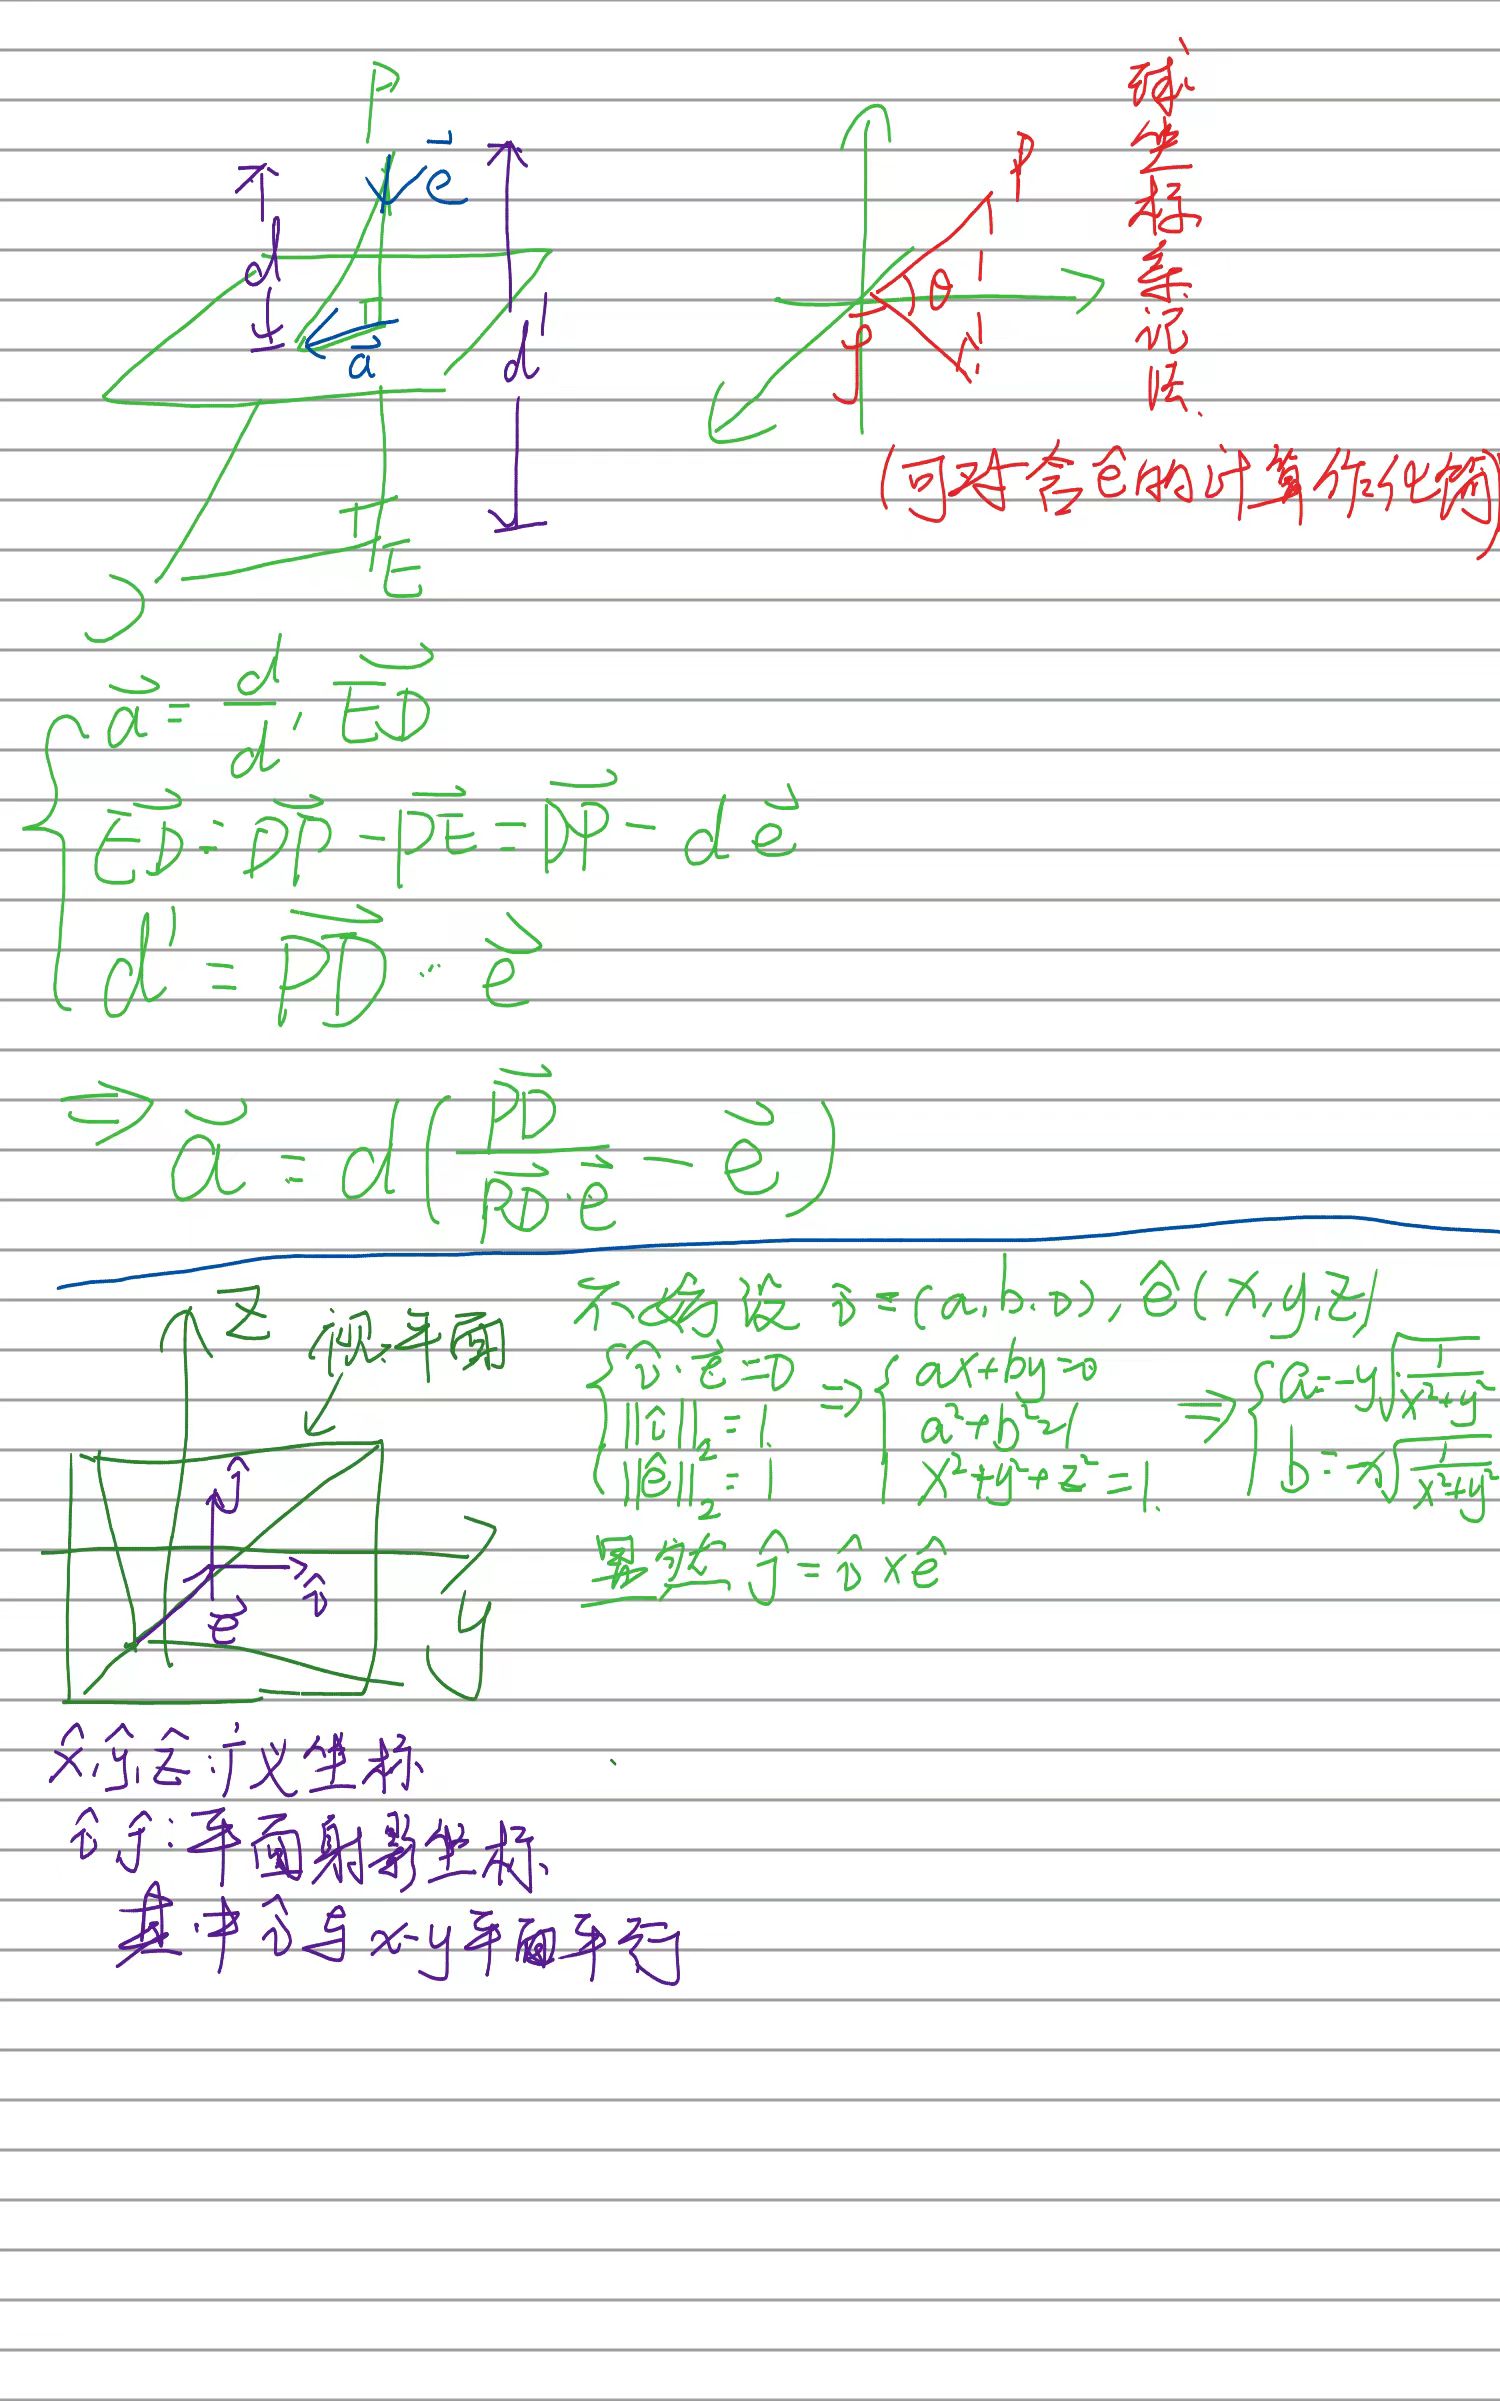 P
e⃗
d
d'
a⃗
D
E
P
θ
φ
球坐标系记法.
(可对含ê的计算作化简)
a⃗ = d/d' E⃗D
E⃗D = D⃗P - P⃗E = D⃗P - d e⃗
d' = P⃗D · e⃗
⇒ a⃗ = d(P⃗D/(P⃗D·e⃗) - e⃗)
Z
视平面
j
î
e⃗
y
不妨设 î=(a,b,0), ê(x,y,z)
{ î·e⃗=0 ||î||₂=1. ||ê||₂=1 ⇒ { ax+by=0 a²+b²=1 x²+y²+z²=1. ⇒ { a=-y√(1/(x²+y²)) b=x√(1/(x²+y²))
显然 ĵ=î×ê
x̂,ŷ,ẑ:广义坐标
î ĵ:平面射影坐标.
其中î与x-y平面平行